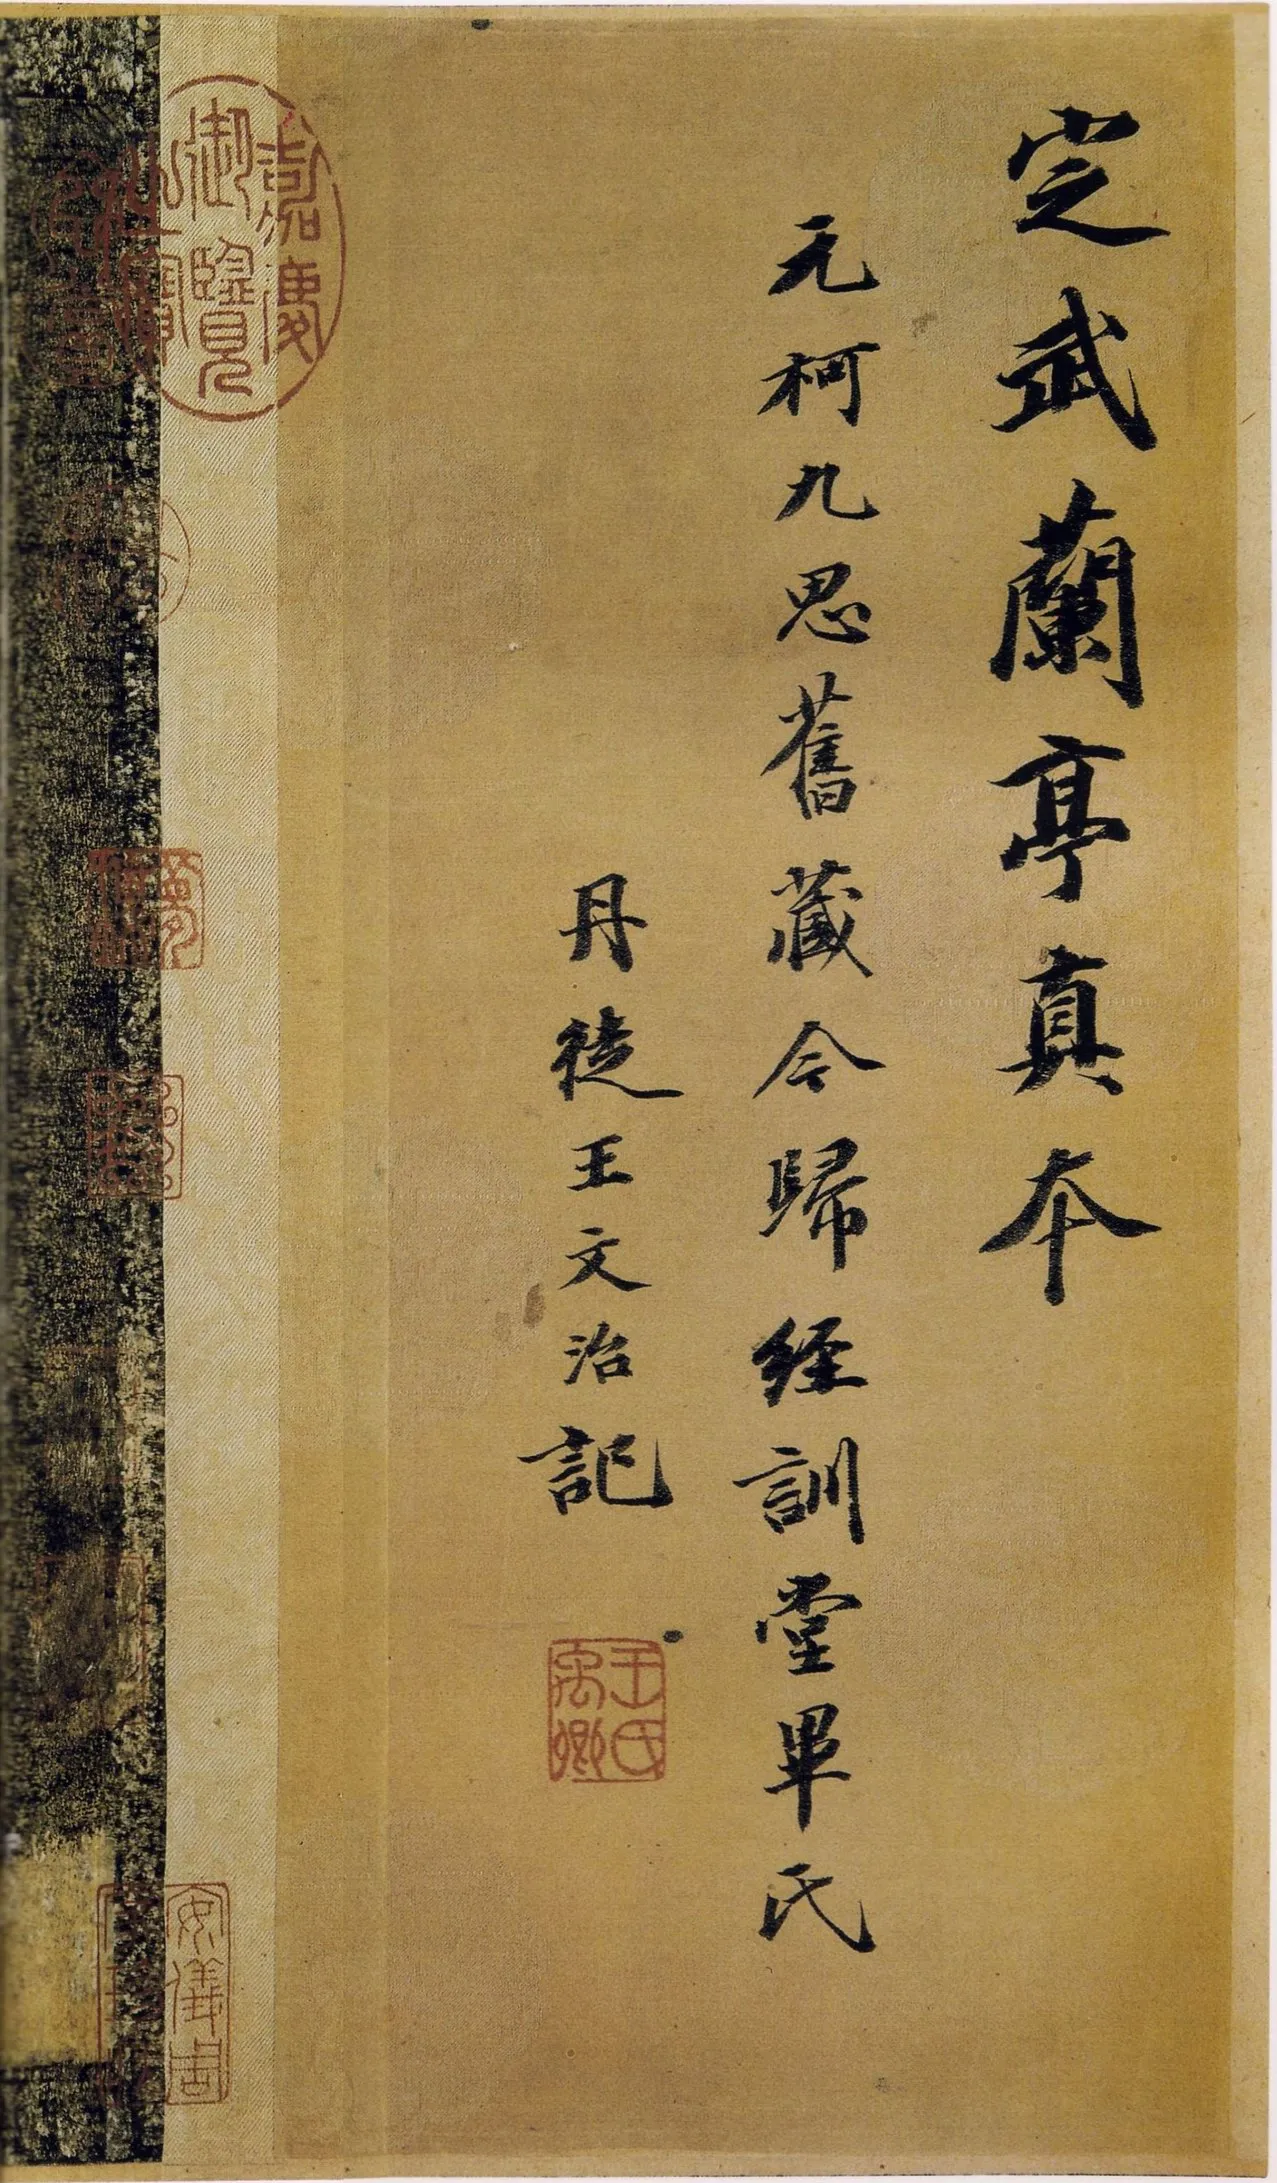 定武蘭亭真本
元柯九思舊藏今歸經訓堂畢氏
丹徒王文治記
王氏禹卿
嘉慶御覽之寶
安儀周